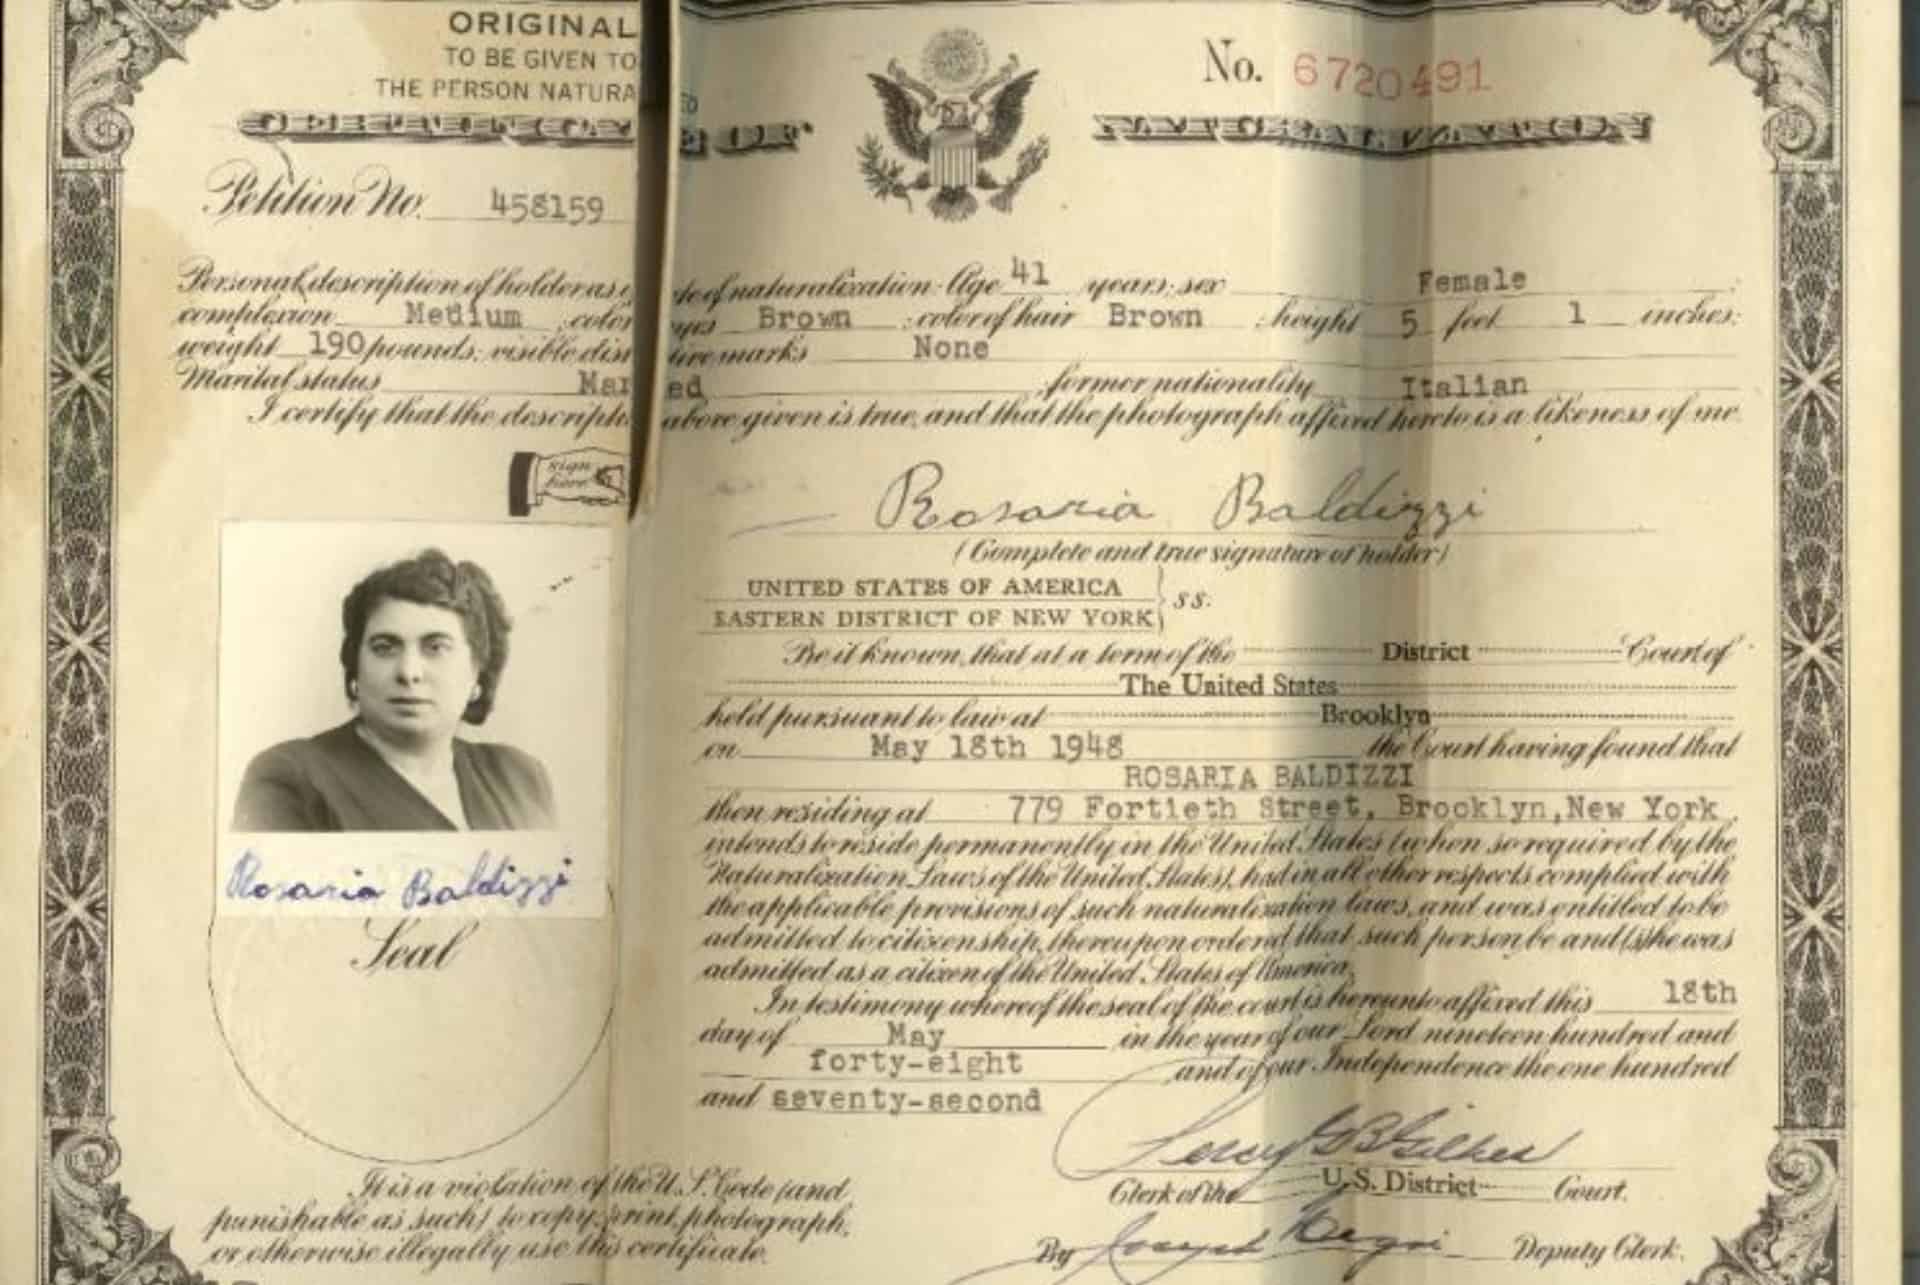 ORIGINAL
TO BE GIVEN TO
THE PERSON NATURA ED
No. 6720491
OF NATURALIZATION
Petition No. 458159
Personal description of holder as of naturalization: Age 41 years; sex Female
complexion Medium ; color eyes Brown ; color of hair Brown ; height 5 feet 1 inches;
weight 190 pounds; visible dis ive marks None
Marital status Mar ed former nationality Italian
I certify that the descripti above given is true, and that the photograph affixed hereto is a likeness of me.
sign here
Rosaria Baldizzi
(Complete and true signature of holder)
UNITED STATES OF AMERICA
EASTERN DISTRICT OF NEW YORK } ss:
Be it known, that at a term of the District Court of
The United States
held pursuant to law at Brooklyn
on May 18th 1948 the Court having found that
ROSARIA BALDIZZI
then residing at 779 Fortieth Street, Brooklyn, New York,
intends to reside permanently in the United States (when so required by the
Naturalization Laws of the United States), had in all other respects complied with
the applicable provisions of such naturalization laws, and was entitled to be
admitted to citizenship, thereupon ordered that such person be and (s)he was
admitted as a citizen of the United States of America.
In testimony whereof the seal of the court is hereunto affixed this 18th
day of May in the year of our Lord nineteen hundred and
forty-eight and of our Independence the one hundred
and seventy-second
Rosaria Baldizzi
Seal
It is a violation of the U.S. Code (and
punishable as such) to copy, print, photograph,
or otherwise illegally use this certificate.
Clerk of the U.S. District Court.
By Deputy Clerk.